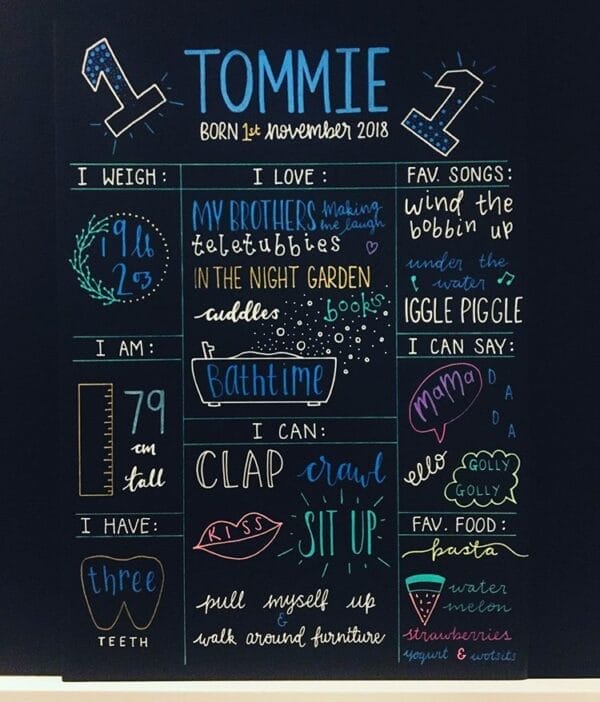 1 TOMMIE 1
BORN 1st november 2018
I WEIGH:
19lb
2oz
I AM:
79
cm
tall
I HAVE:
three
TEETH
I LOVE:
MY BROTHERS making me laugh
teletubbies
IN THE NIGHT GARDEN
cuddles books
Bathtime
I CAN:
CLAP crawl
KISS SIT UP
pull myself up
&
walk around furniture
FAV. SONGS:
wind the
bobbin up
under the
water
IGGLE PIGGLE
I CAN SAY:
MAMA DADA
ello GOLLY
GOLLY
FAV. FOOD:
pasta
water
melon
strawberries
yogurt & wotsits